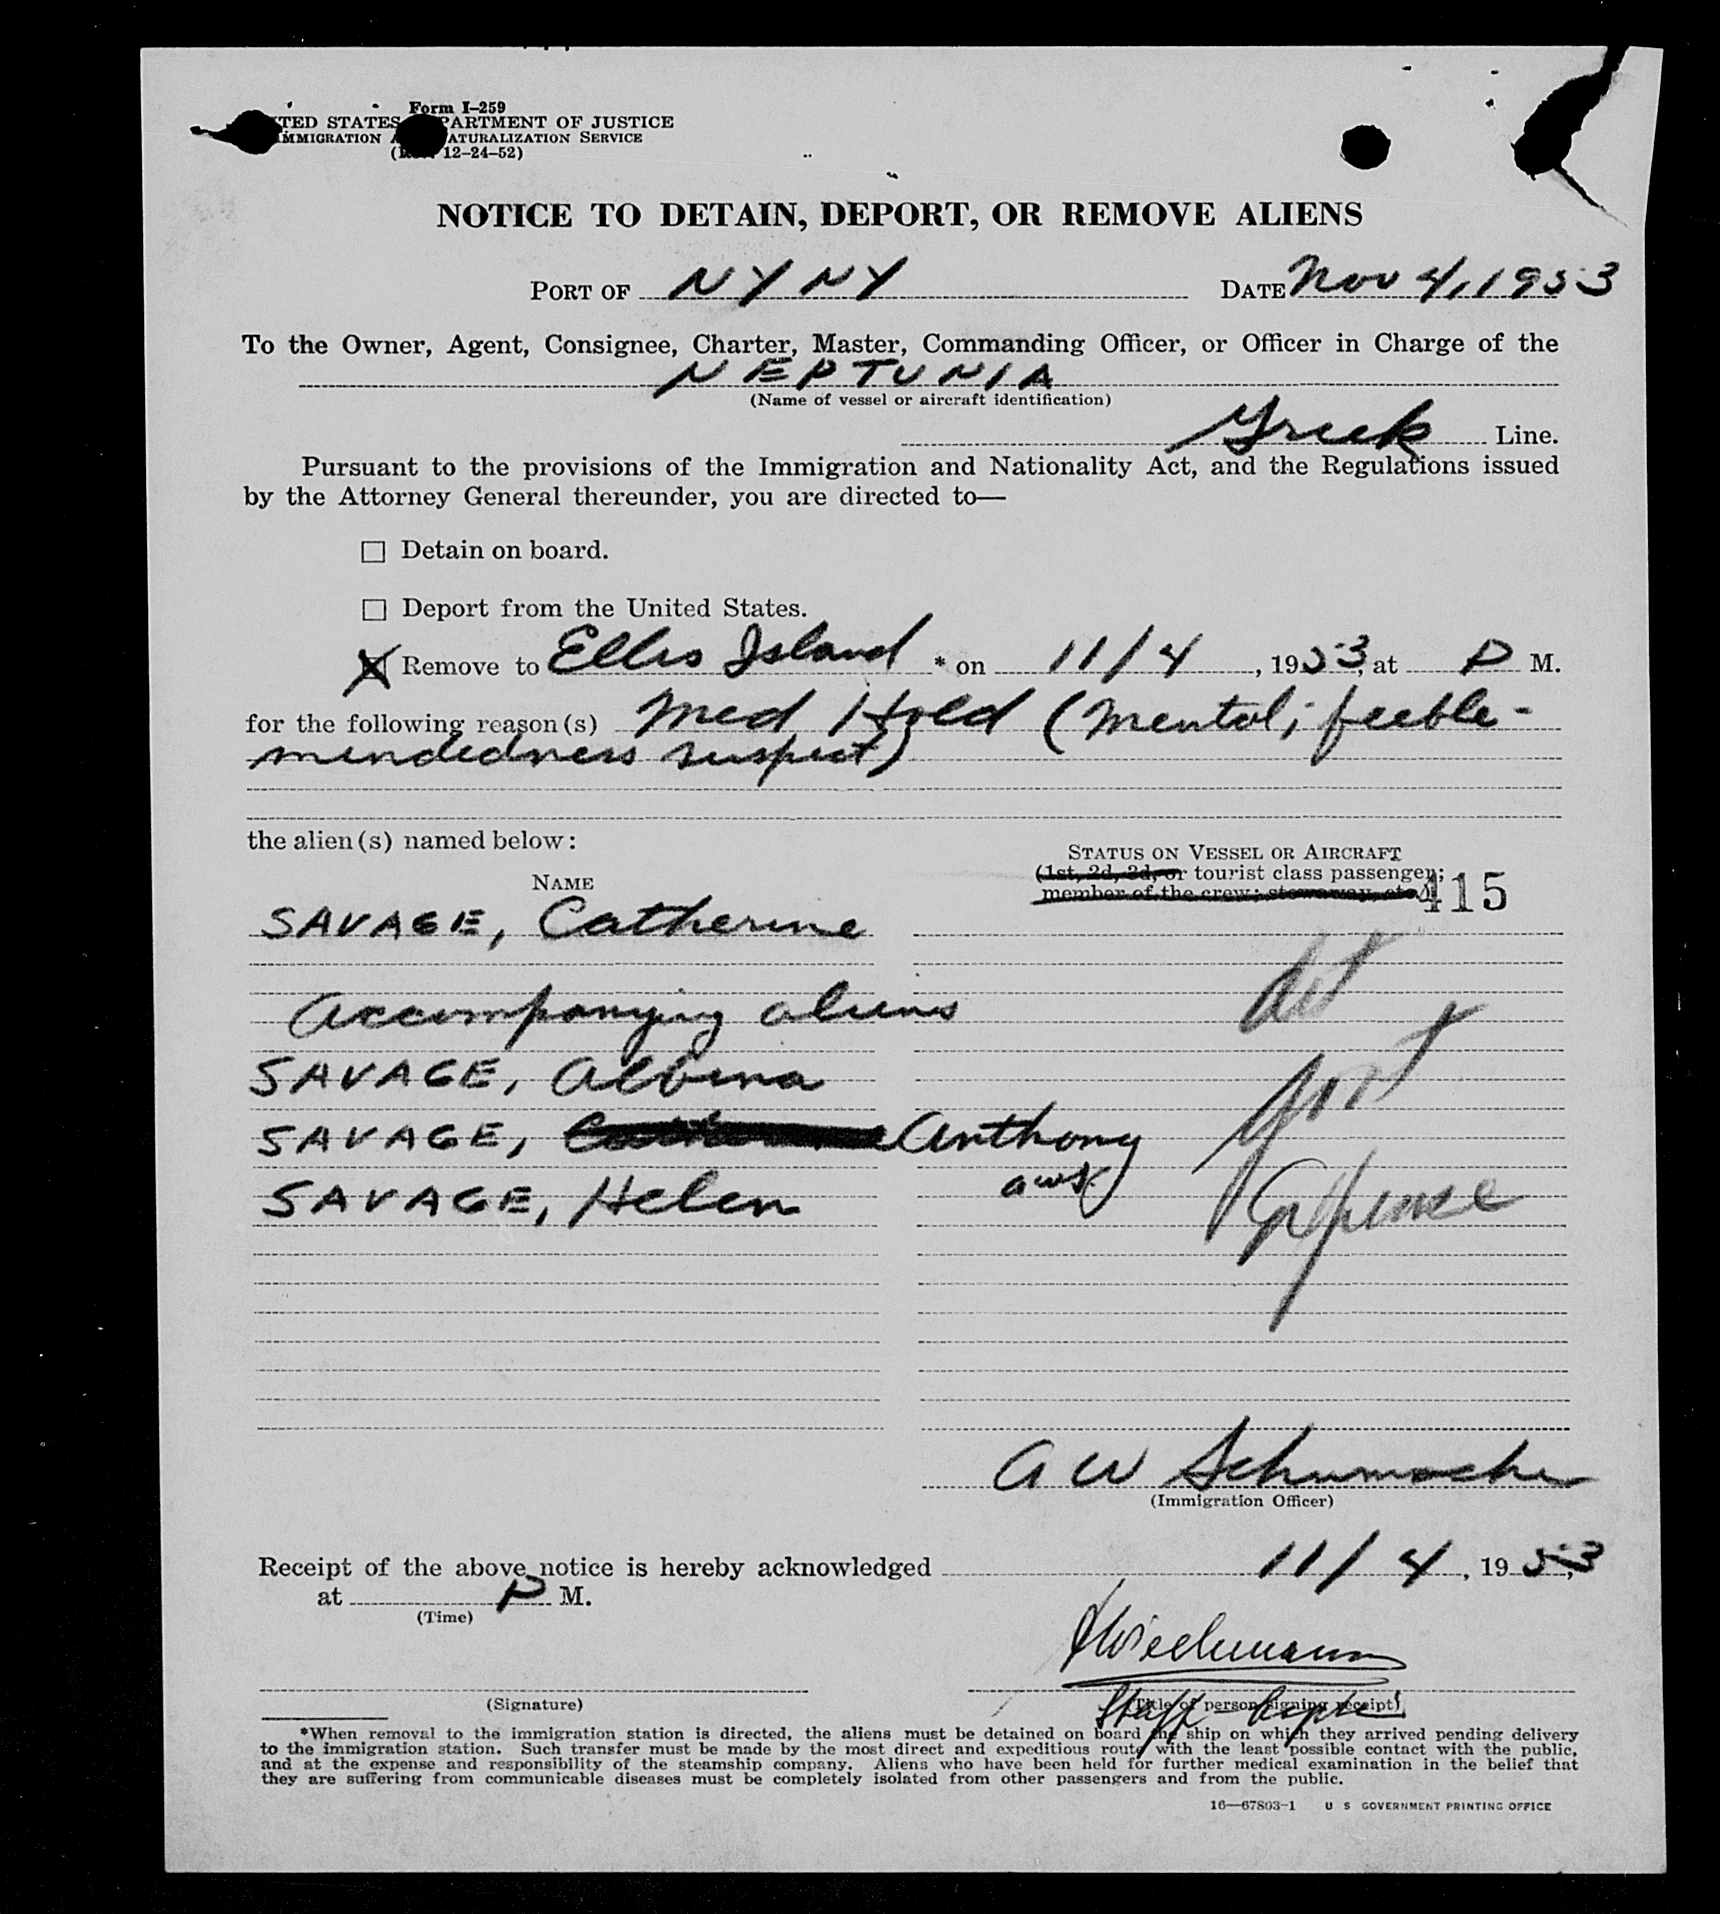 Form I-259
TED STATES PARTMENT OF JUSTICE
MMIGRATION A ATURALIZATION SERVICE
12-24-52)
NOTICE TO DETAIN, DEPORT, OR REMOVE ALIENS
PORT OF NY NY DATE Nov 4, 1953
To the Owner, Agent, Consignee, Charter, Master, Commanding Officer, or Officer in Charge of the
NEPTUNIA
(Name of vessel or aircraft identification)
Greek Line.
Pursuant to the provisions of the Immigration and Nationality Act, and the Regulations issued
by the Attorney General thereunder, you are directed to—
☐ Detain on board.
☐ Deport from the United States.
☒ Remove to Ellis Island * on 11/4, 1953, at P M.
for the following reason(s) Med Hold (Mental; feeble-
mindedness suspect)
the alien(s) named below:
STATUS ON VESSEL OR AIRCRAFT
(1st, 2d, 3d, or tourist class passenger;
member of the crew; stowaway, etc.)
415
NAME
SAVAGE, Catherine
Accompanying aliens
SAVAGE, Albina
SAVAGE, Anthony
aws
SAVAGE, Helen
Expense
A W Schumacher
(Immigration Officer)
Receipt of the above notice is hereby acknowledged 11/4, 1953,
at P M.
(Time)
Wiechmann
(Signature)
(Title of person signing receipt)
Staff
*When removal to the immigration station is directed, the aliens must be detained on board the ship on which they arrived pending delivery
to the immigration station. Such transfer must be made by the most direct and expeditious route with the least possible contact with the public,
and at the expense and responsibility of the steamship company. Aliens who have been held for further medical examination in the belief that
they are suffering from communicable diseases must be completely isolated from other passengers and from the public.
16—67803-1 U S GOVERNMENT PRINTING OFFICE